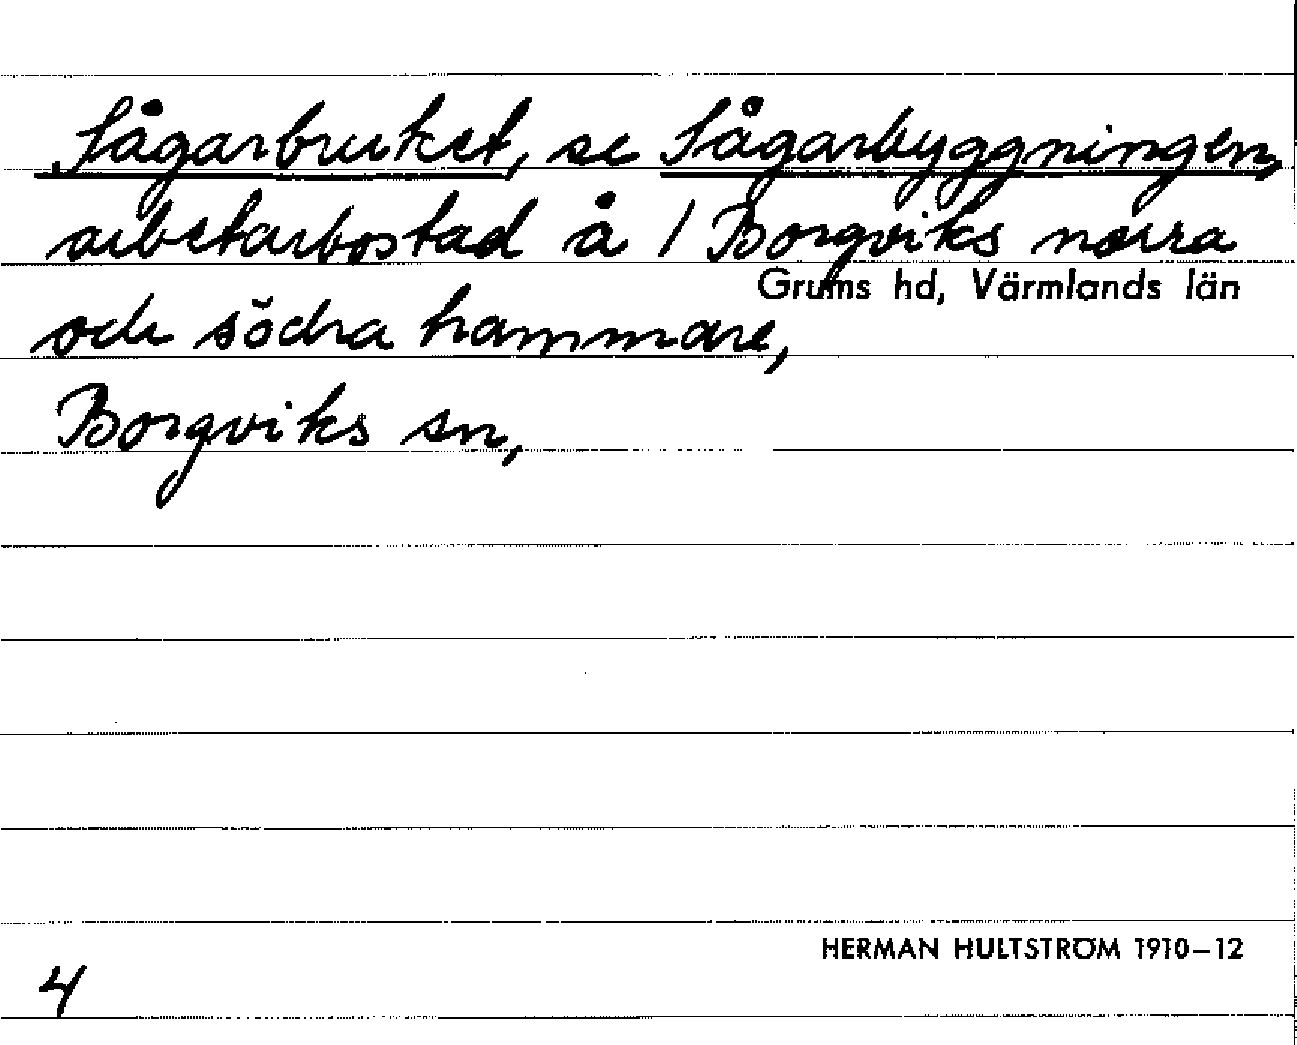 Sågarbruket, se Sågarbyggningen,
arbetarbostad å 1 Borgviks norra
Grums hd, Värmlands län
och södra hammare,
Borgviks sn,
HERMAN HULTSTRÖM 1910–12
4